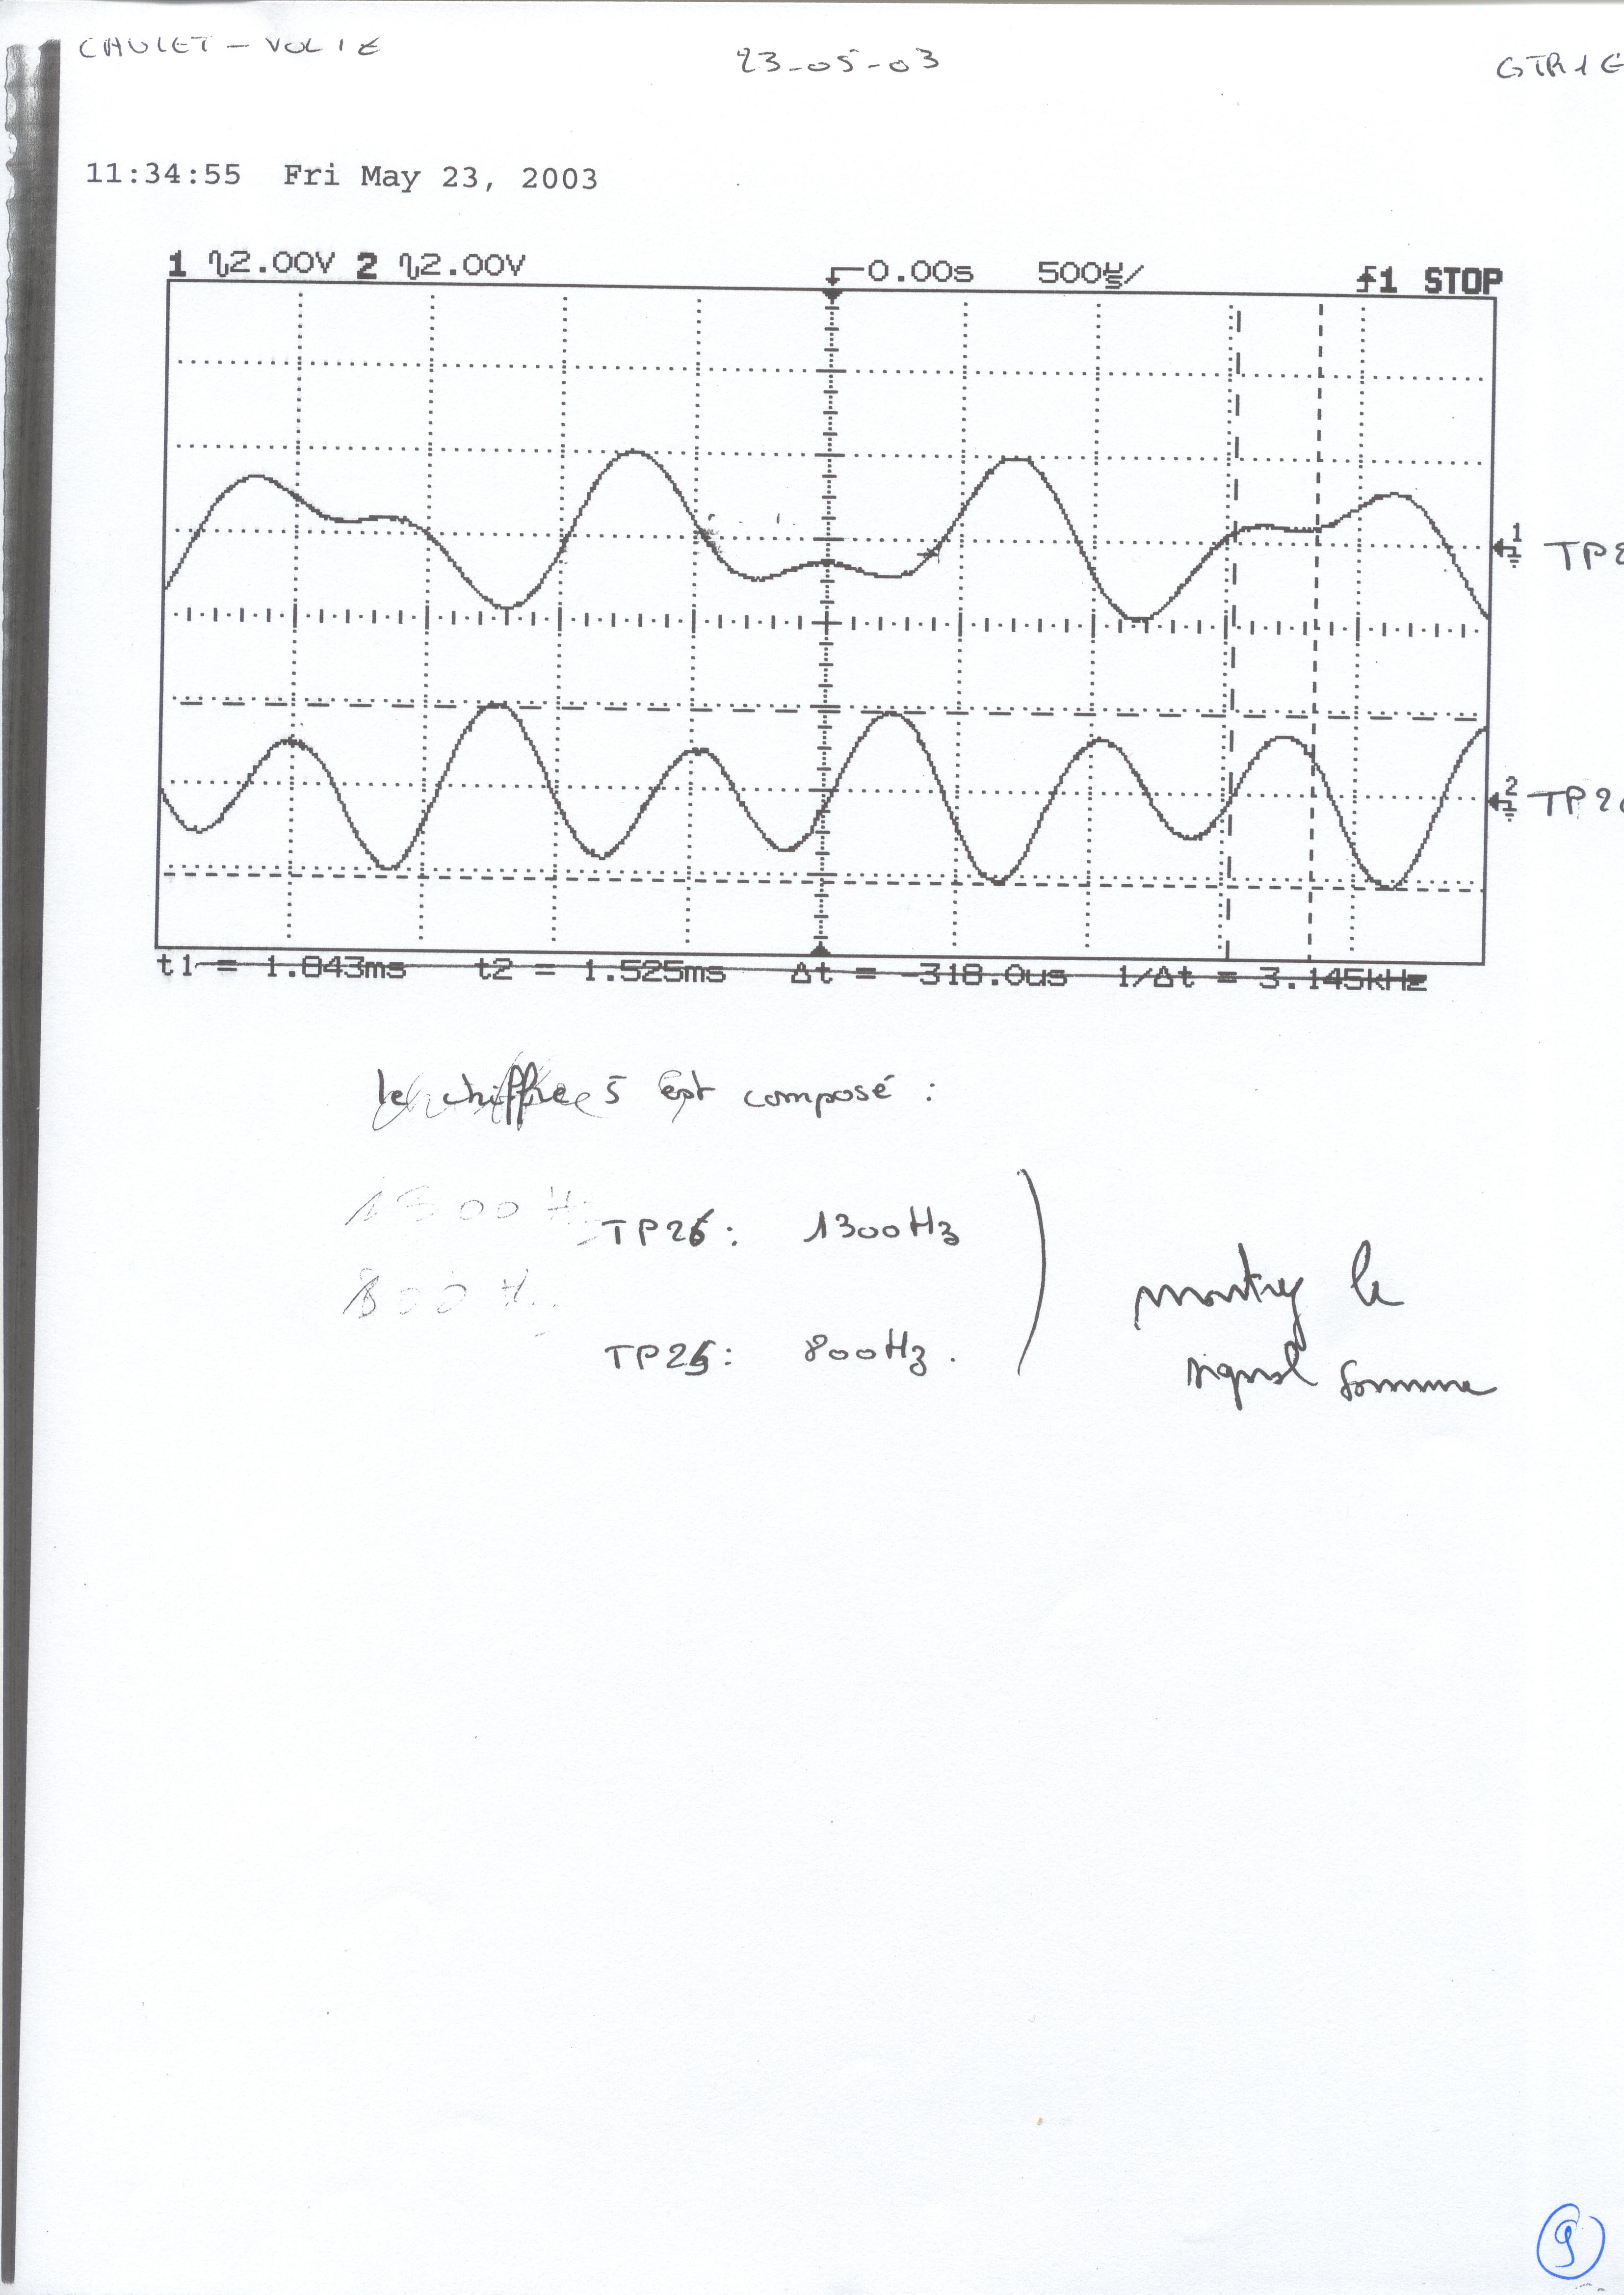 CHOLET - VOLIE 23-05-03 GTR1G
11:34:55 Fri May 23, 2003
1 2.00V 2 2.00V 0.00s 500µs/ 1 STOP
1
TP2
2
TP26
t1 = 1.843ms t2 = 1.525ms Δt = -318.0us 1/Δt = 3.145kHz
le chiffre 5 est composé :
1300 Hz
TP26: 1300Hz
800 H
TP25: 800Hz.
montrez le
signal somme
9